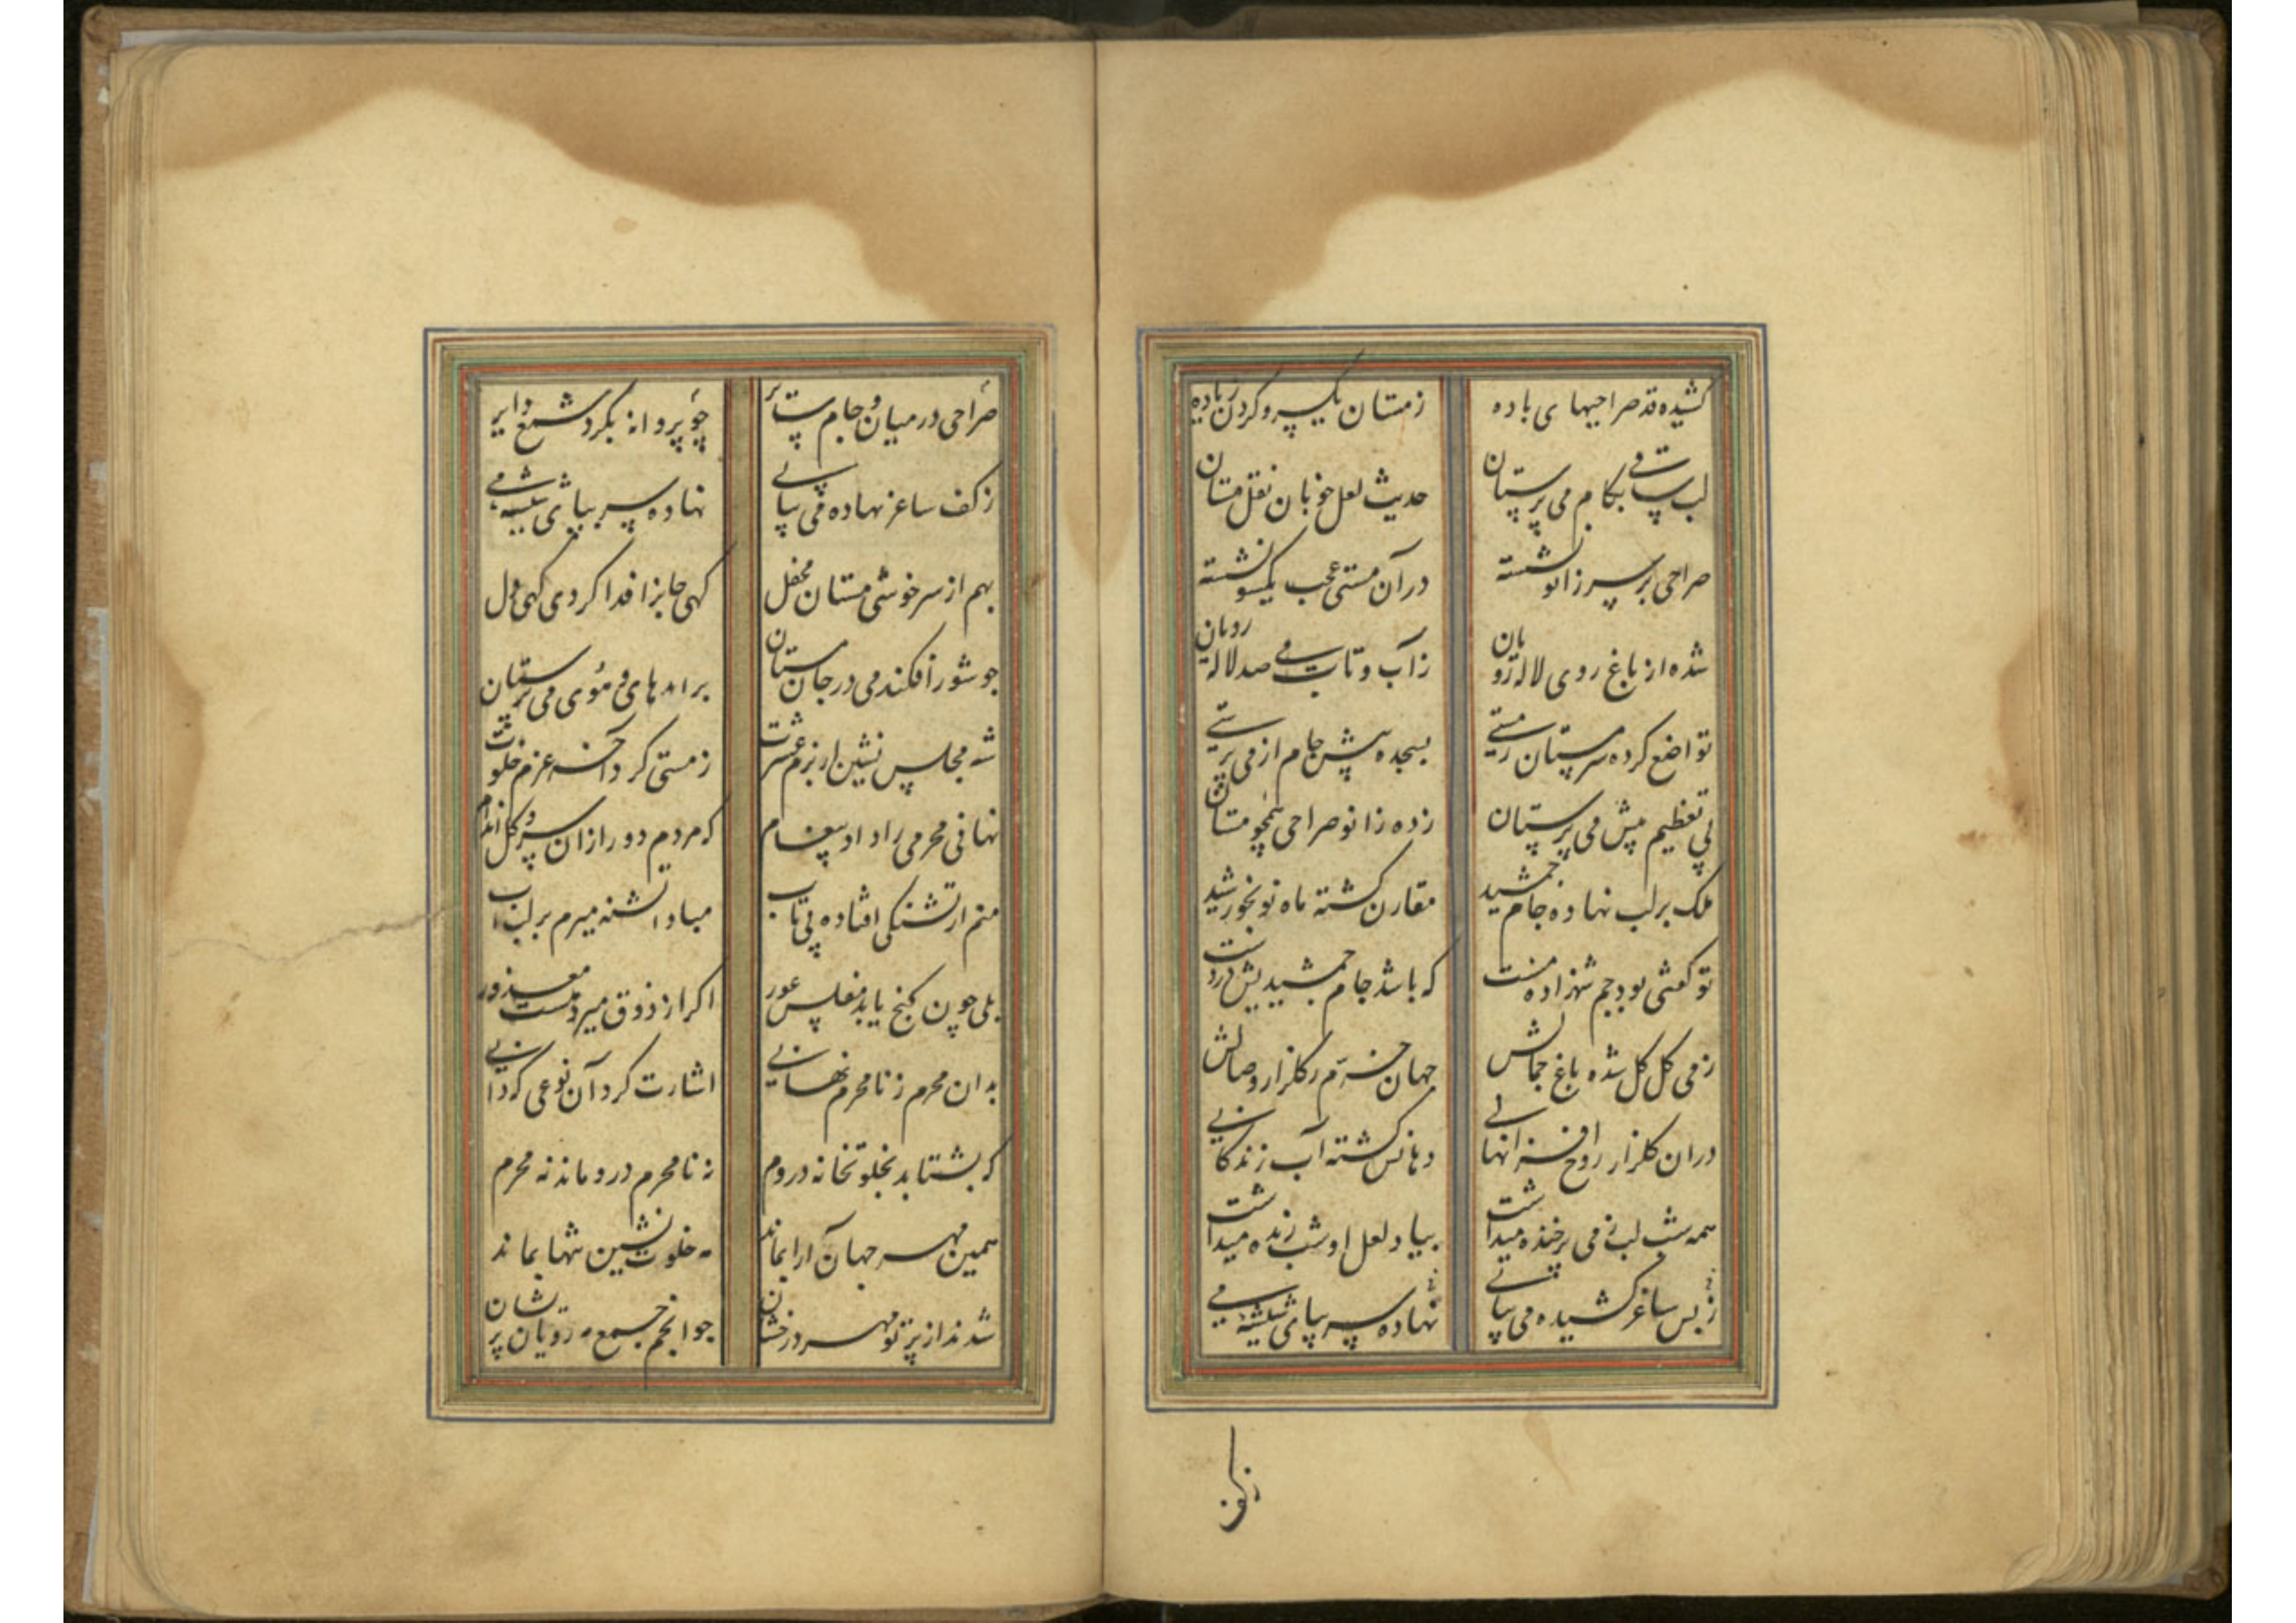 کشیده قد صراحیهای باده زمستان یکسر و کردن زیاده
لب ساقی بکام می پرستان حدیث لعل خوبان نقل مستان
صراحی بر سر زانو نشسته در آن مستی عجب یکسو نشسته
شده از باغ روی لاله رویان ز آب و تاب می صد لاله رویان
تواضع کرده سرمستان زمستی بسجده پیش جام از می پرستی
پی تعظیم پیش می پرستان زده زانو صراحی همچو مستان
ملک بر لب نهاده جام جمشید مقارن کشته ماه نو بخورشید
تو کفتی بود جم شهزاده مست که باشد جام جمشیدیش در دست
زمی کل کل شده باغ جمالش جهان خرم ز کلزار وصالش
دران کلزار روح افزا نهالی دهانش کشته آب زندکانی
همه شب لب زمی پر خنده میداشت بیاد لعل او شب زنده میداشت
ز بس ساغر کشیده می پیاپی نهاده سر بپای شیشه می
زکف
صراحی در میان و جام پست چو پروانه بکرد شمع دایر
زکف ساغر نهاده می پیاپی نهاده سر بپای شیشه می
بهم از سرخوشی مستان محفل کهی جانرا فدا کردی کهی دل
چو شور افکند می در جان مستان بر امد های و هوی می پرستان
شه مجلس نشین از بزم عشرت زمستی کرد آخر عزم خلوت
نهانی محرمی را داد پیغام که مردم دور ازان سرو کل اندام
منم از تشنکی افتاده بی تاب مبادا تشنه میرم بر لب آب
بلی چون کنج یابد مفلس عور اکر از ذوق میرد هست معذور
بدان محرم ز نامحرم نهانی اشارت کرد آن نوعی که دانی
که بشتابد بخلوتخانه در دم نه نامحرم درو ماند نه محرم
همین مهر جهان آرا بماند مه خلوت نشین تنها بماند
شدند از پرتو مهر درخشان چو انجم جمع مه رویان پریشان